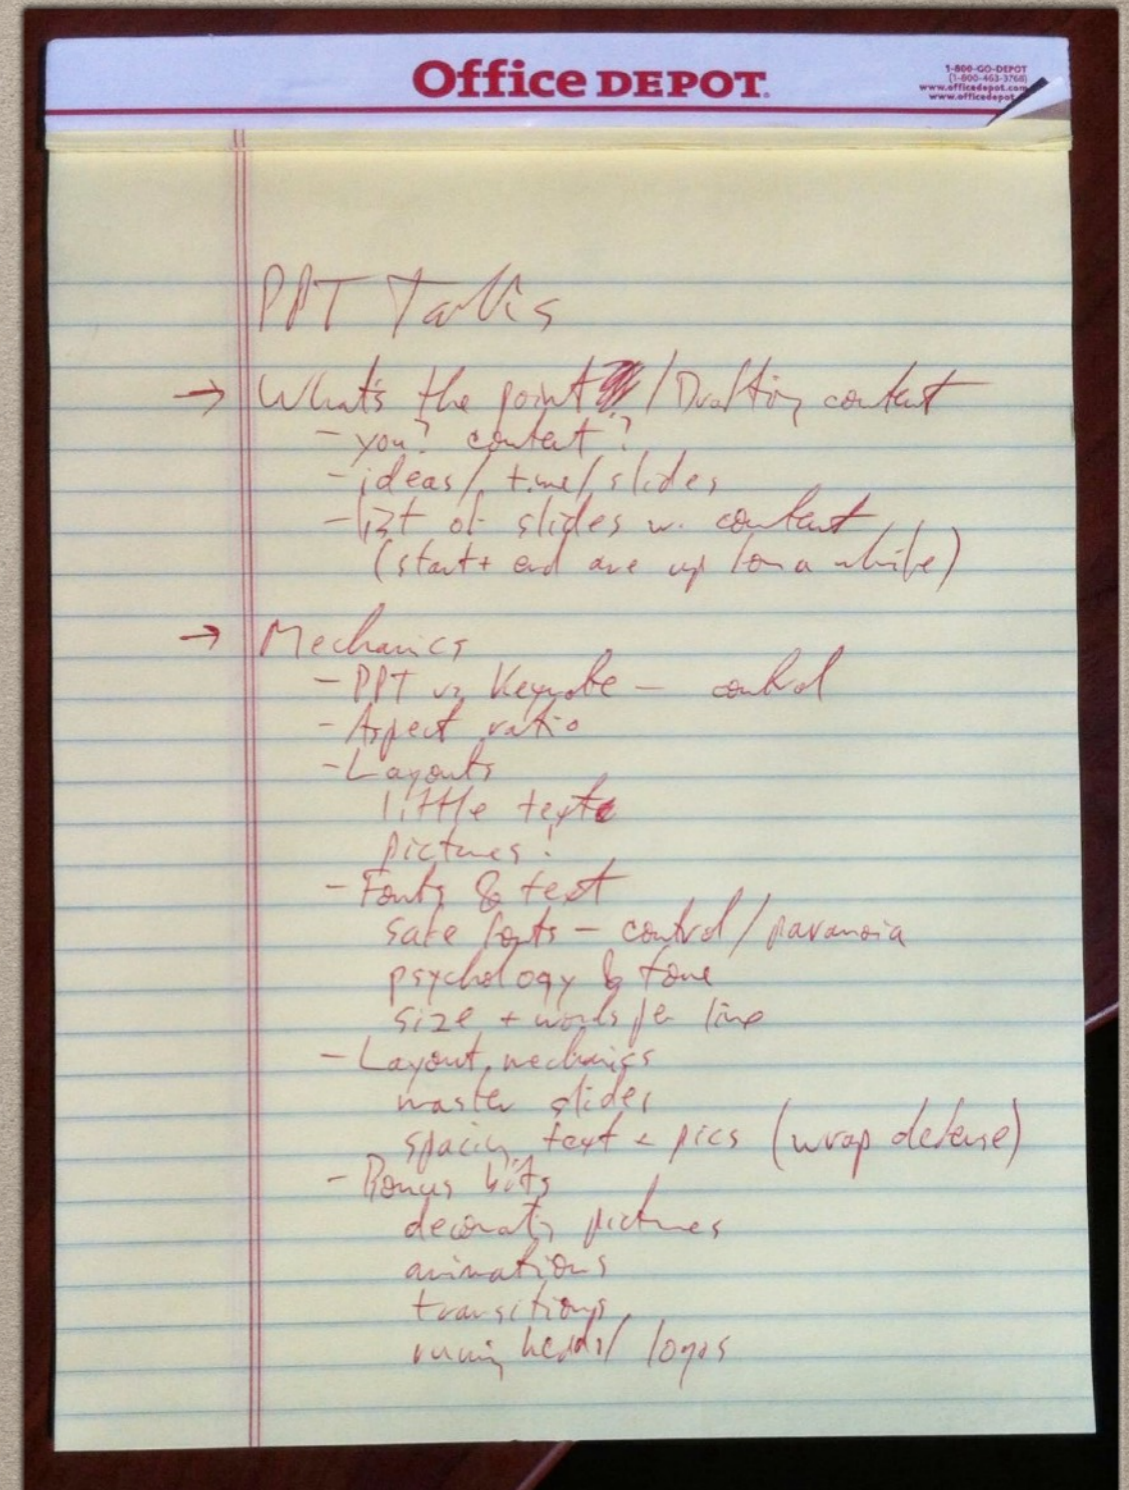 Office DEPOT.
1-800-GO-DEPOT
(1-800-463-3768)
www.officedepot.com
www.officedepot
PPT Talks
→ What's the point / Drafting content
- you? content?
- ideas / time / slides
- list of slides w. content
(start + end are up for a while)
→ Mechanics
- PPT vs Keynote - control
- Aspect ratio
- Layouts
little text
pictures!
- Fonts & text
safe fonts - control / paranoia
psychology & tone
size + words per line
- Layout mechanics
master slides
spacing text + pics (wrap defense)
- Bonus bits
decorating pictures
animations
transitions
running heads / logos